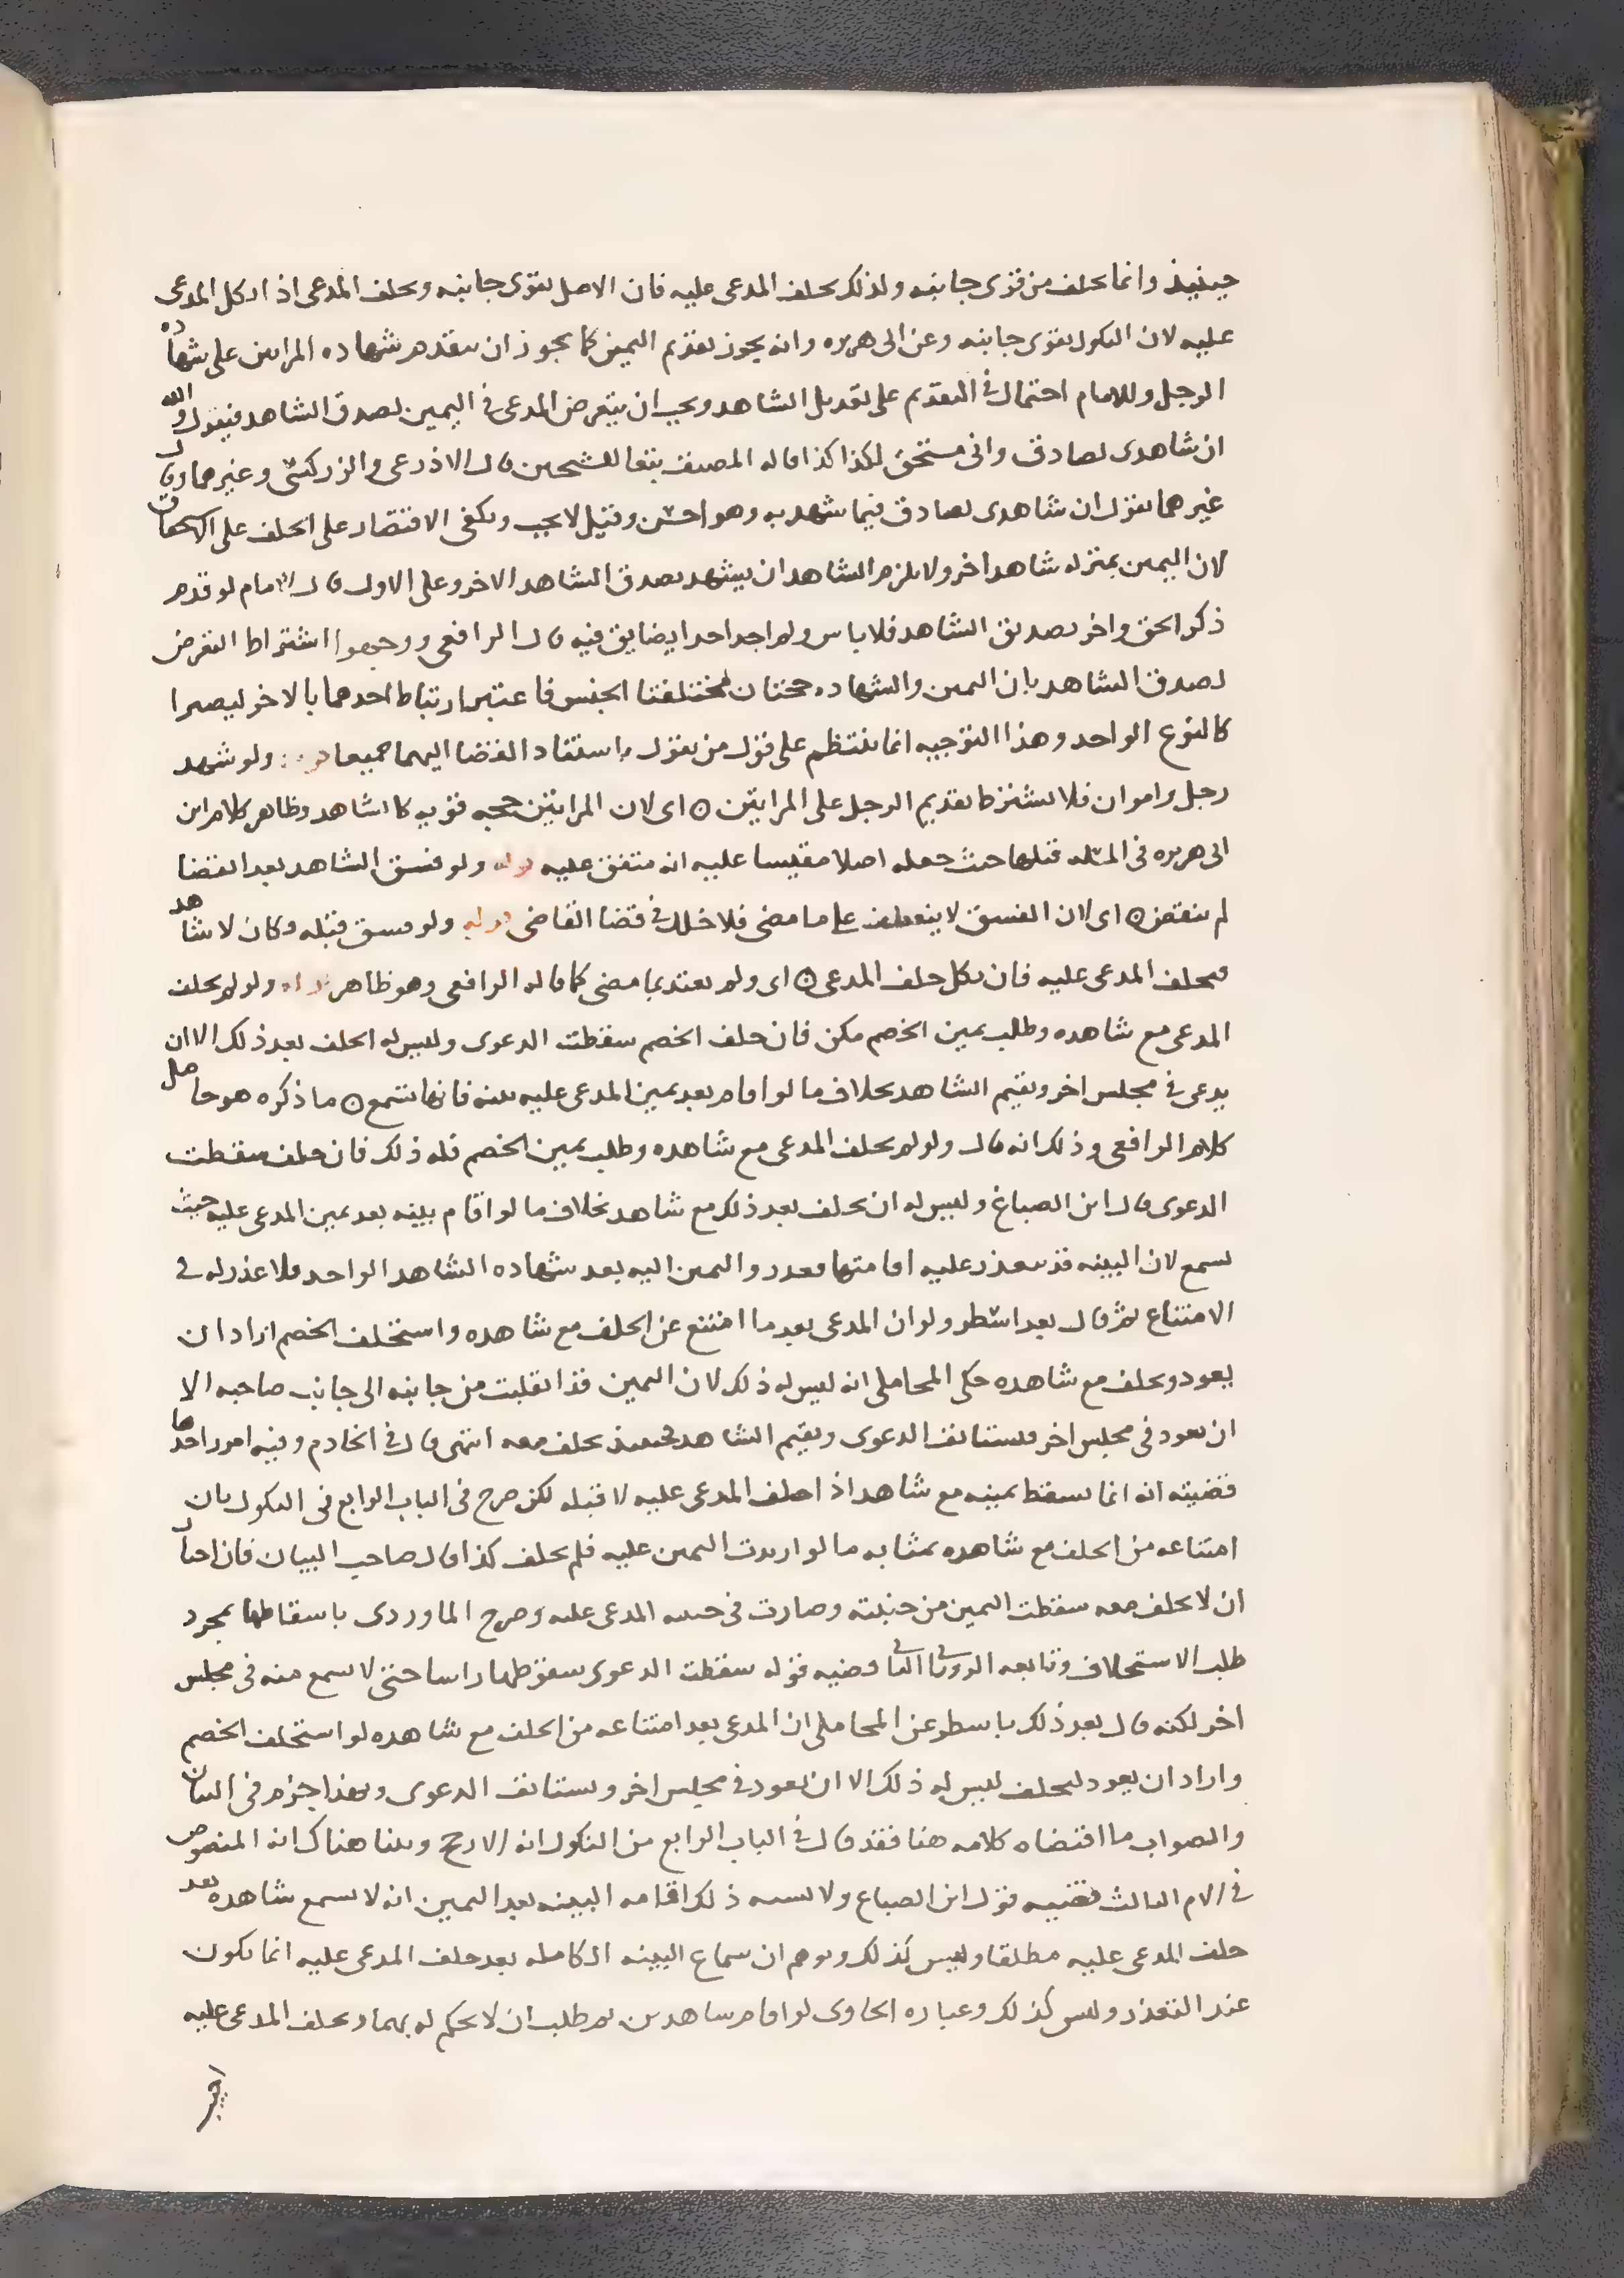 حينيذ وانما يحلف من قوى جانبه ولذلك يحلف المدعى عليه فان الاصل يقوى جانبه ويحلف المدعى اذا نكل المدعى
عليه لان النكول يقوى جانبه وعن ابى هريره وانه يجوز تقديم اليمين كما يجوز ان يتقدم شهاده المراتين على شهاده
الرجل وللامام احتمال فى التقديم على تعديل الشاهد ويجب ان يتعرض المدعى فى اليمين لصدق الشاهد فيقول والله
ان شاهدى لصادق وانى مستحق لكذا كذا قاله المصنف تبعا للشيخين قال الاذرعى والزركشى وغيرهما وقال
غيرهما يقول ان شاهدى لصادق فيما شهد به وهو احسن وقيل لا يجب ويكفى الاقتصار على الحلف على الاستحقاق
لان اليمين بمنزله شاهد اخر ولا يلزم الشاهد ان يشهد بصدق الشاهد الاخر وعلى الاول قال الامام لو قدم
ذكر الحق واخر تصديق الشاهد فلا باس ولم اجد احدا يضايق فيه قال الرافعى ووجهوا اشتراط التعرض
لصدق الشاهد بان اليمين والشهاده حجتان مختلفتا الجنس فاعتبر ارتباط احدهما بالاخر ليصيرا
كالنوع الواحد وهذا التوجيه انما ينتظم على قول من يقول باستناد القضا اليهما جميعا قوله ولو شهد
رجل وامراتان فلا يشترط تقديم الرجل على المراتين ه اى لان المراتين حجه قويه كالشاهد وظاهر كلام ابن
ابى هريره فى المسله قبلها حيث جعله اصلا مقيسا عليه انه متفق عليه قوله ولو فسق الشاهد بعد القضا
لم ينقض ه اى لان الفسق لا ينعطف على ما مضى فلا خلل فى قضا القاضى قوله ولو فسق قبله فكان لا شاهد
فيحلف المدعى عليه فان نكل حلف المدعى ه اى ولم يعتد بما مضى كما قاله الرافعى وهو ظاهر قوله ولو لم يحلف
المدعى مع شاهده وطلب يمين الخصم مكن فان حلف الخصم سقطت الدعوى وليس له الحلف بعد ذلك الا ان
يدعى فى مجلس اخر ويقيم الشاهد بخلاف ما لو اقام بعد يمين المدعى عليه بينه فانها تسمع ه ما ذكره هو حاصل
كلام الرافعى وذلك انه قال ولو لم يحلف المدعى مع شاهده وطلب يمين الخصم فله ذلك فان حلف سقطت
الدعوى قال ابن الصباغ وليس له ان يحلف بعد ذلك مع شاهد بخلاف ما لو اقام بينه بعد يمين المدعى عليه حيث
تسمع لان البينه قد تتعذر عليه اقامتها فعذر واليمين اليه بعد شهاده الشاهد الواحد فلا عذر له فى
الامتناع ثم قال بعد اسطر ولو ان المدعى بعد ما امتنع عن الحلف مع شاهده واستحلف الخصم اراد ان
يعود ويحلف مع شاهده حكى المحاملى انه ليس له ذلك لان اليمين قد انقلبت من جانبه الى جانب صاحبه الا
ان يعود فى مجلس اخر فيستانف الدعوى ويقيم الشاهد فحينيذ يحلف معه انتهى قال فى الخادم وفيه امور احدها
قضيته انه انما يسقط يمينه مع شاهد اذا حلف المدعى عليه لا قبله لكن صرح فى الباب الرابع فى النكول بان
امتناعه من الحلف مع شاهده بمثابه ما لو ارتدت اليمين عليه فلم يحلف كذا قال صاحب البيان فان اختار
ان لا يحلف معه سقطت اليمين من جنبته وصارت فى جنبه المدعى عليه وصرح الماوردى باسقاطها بمجرد
طلب الاستحلاف وتابعه الرويانى الثانى قضيه قوله سقطت الدعوى سقوطها راسا حتى لا تسمع منه فى مجلس
اخر لكنه قال بعد ذلك باسطر عن المحاملى ان المدعى بعد امتناعه من الحلف مع شاهده لو استحلف الخصم
واراد ان يعود ليحلف ليس له ذلك الا ان يعود فى مجلس اخر ويستانف الدعوى وبهذا جزم فى البيان
والصواب ما اقتضاه كلامه هنا فقد قال فى الباب الرابع من النكول انه الارجح وبينا هناك انه المنصوص
فى الام الثالث قضيه قول ابن الصباغ ولا يشبه ذلك اقامه البينه بعد اليمين انه لا تسمع شاهده بعد
حلف المدعى عليه مطلقا وليس كذلك ويوهم ان سماع البينه الكامله بعد حلف المدعى عليه انما يكون
عند التعذر وليس كذلك وعباره الحاوى لو اقام شاهدين ثم طلب ان لا يحكم له بهما ويحلف المدعى عليه